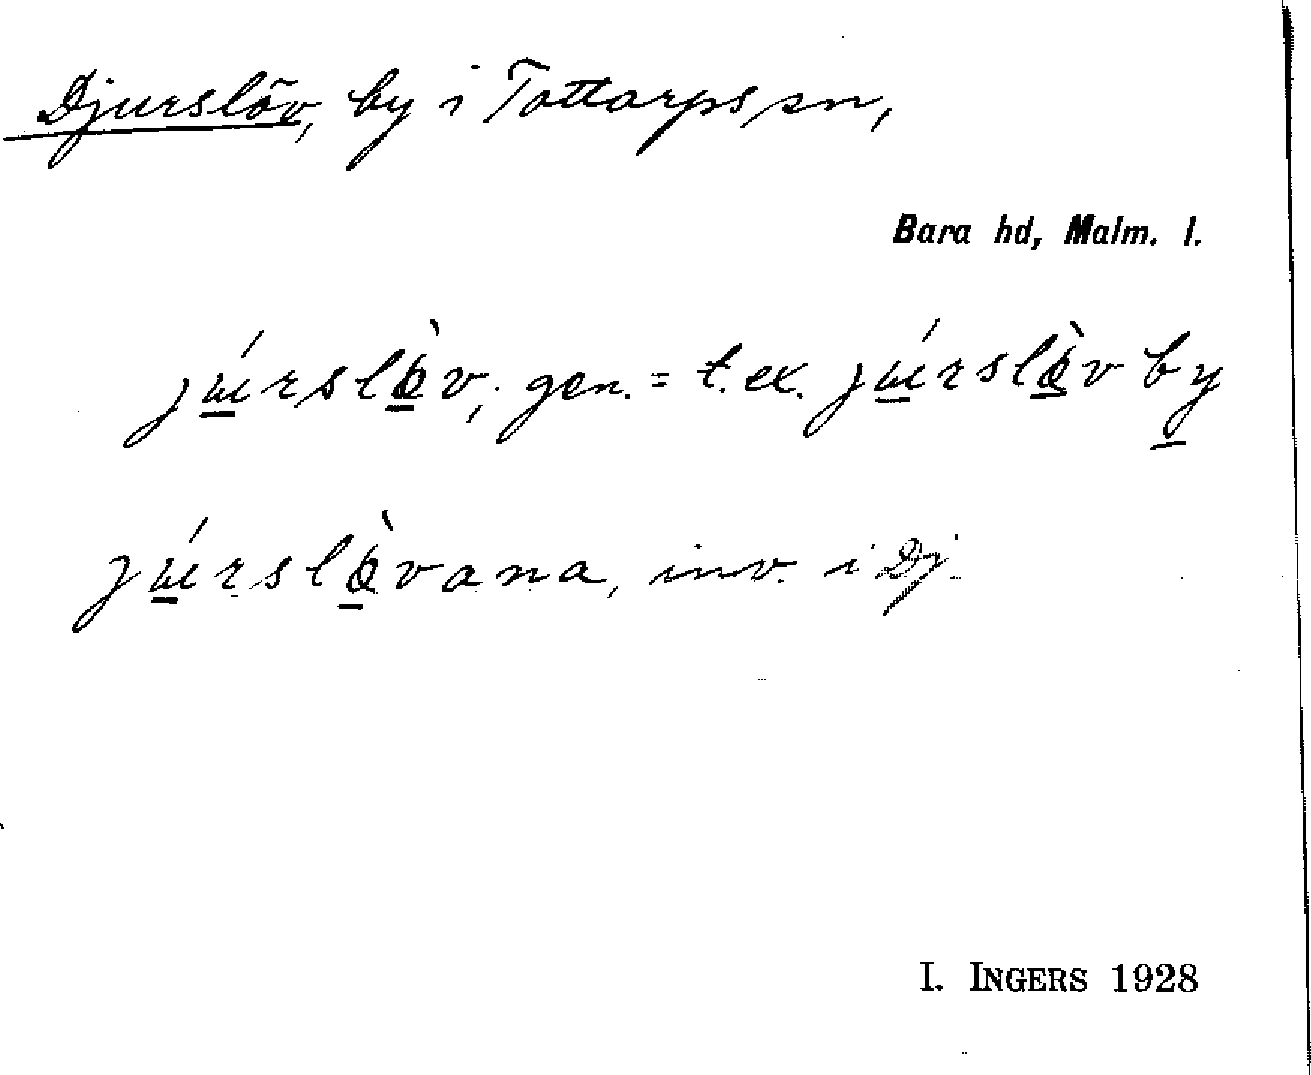 Djurslöv, by i Tottarps sn,
Bara hd, Malm. l.
jɯ́rsløv̀, gen. = t. ex. jɯ́rsløv̀ by
jɯ́rslø̀vana, inv. i Dj.
I. INGERS 1928